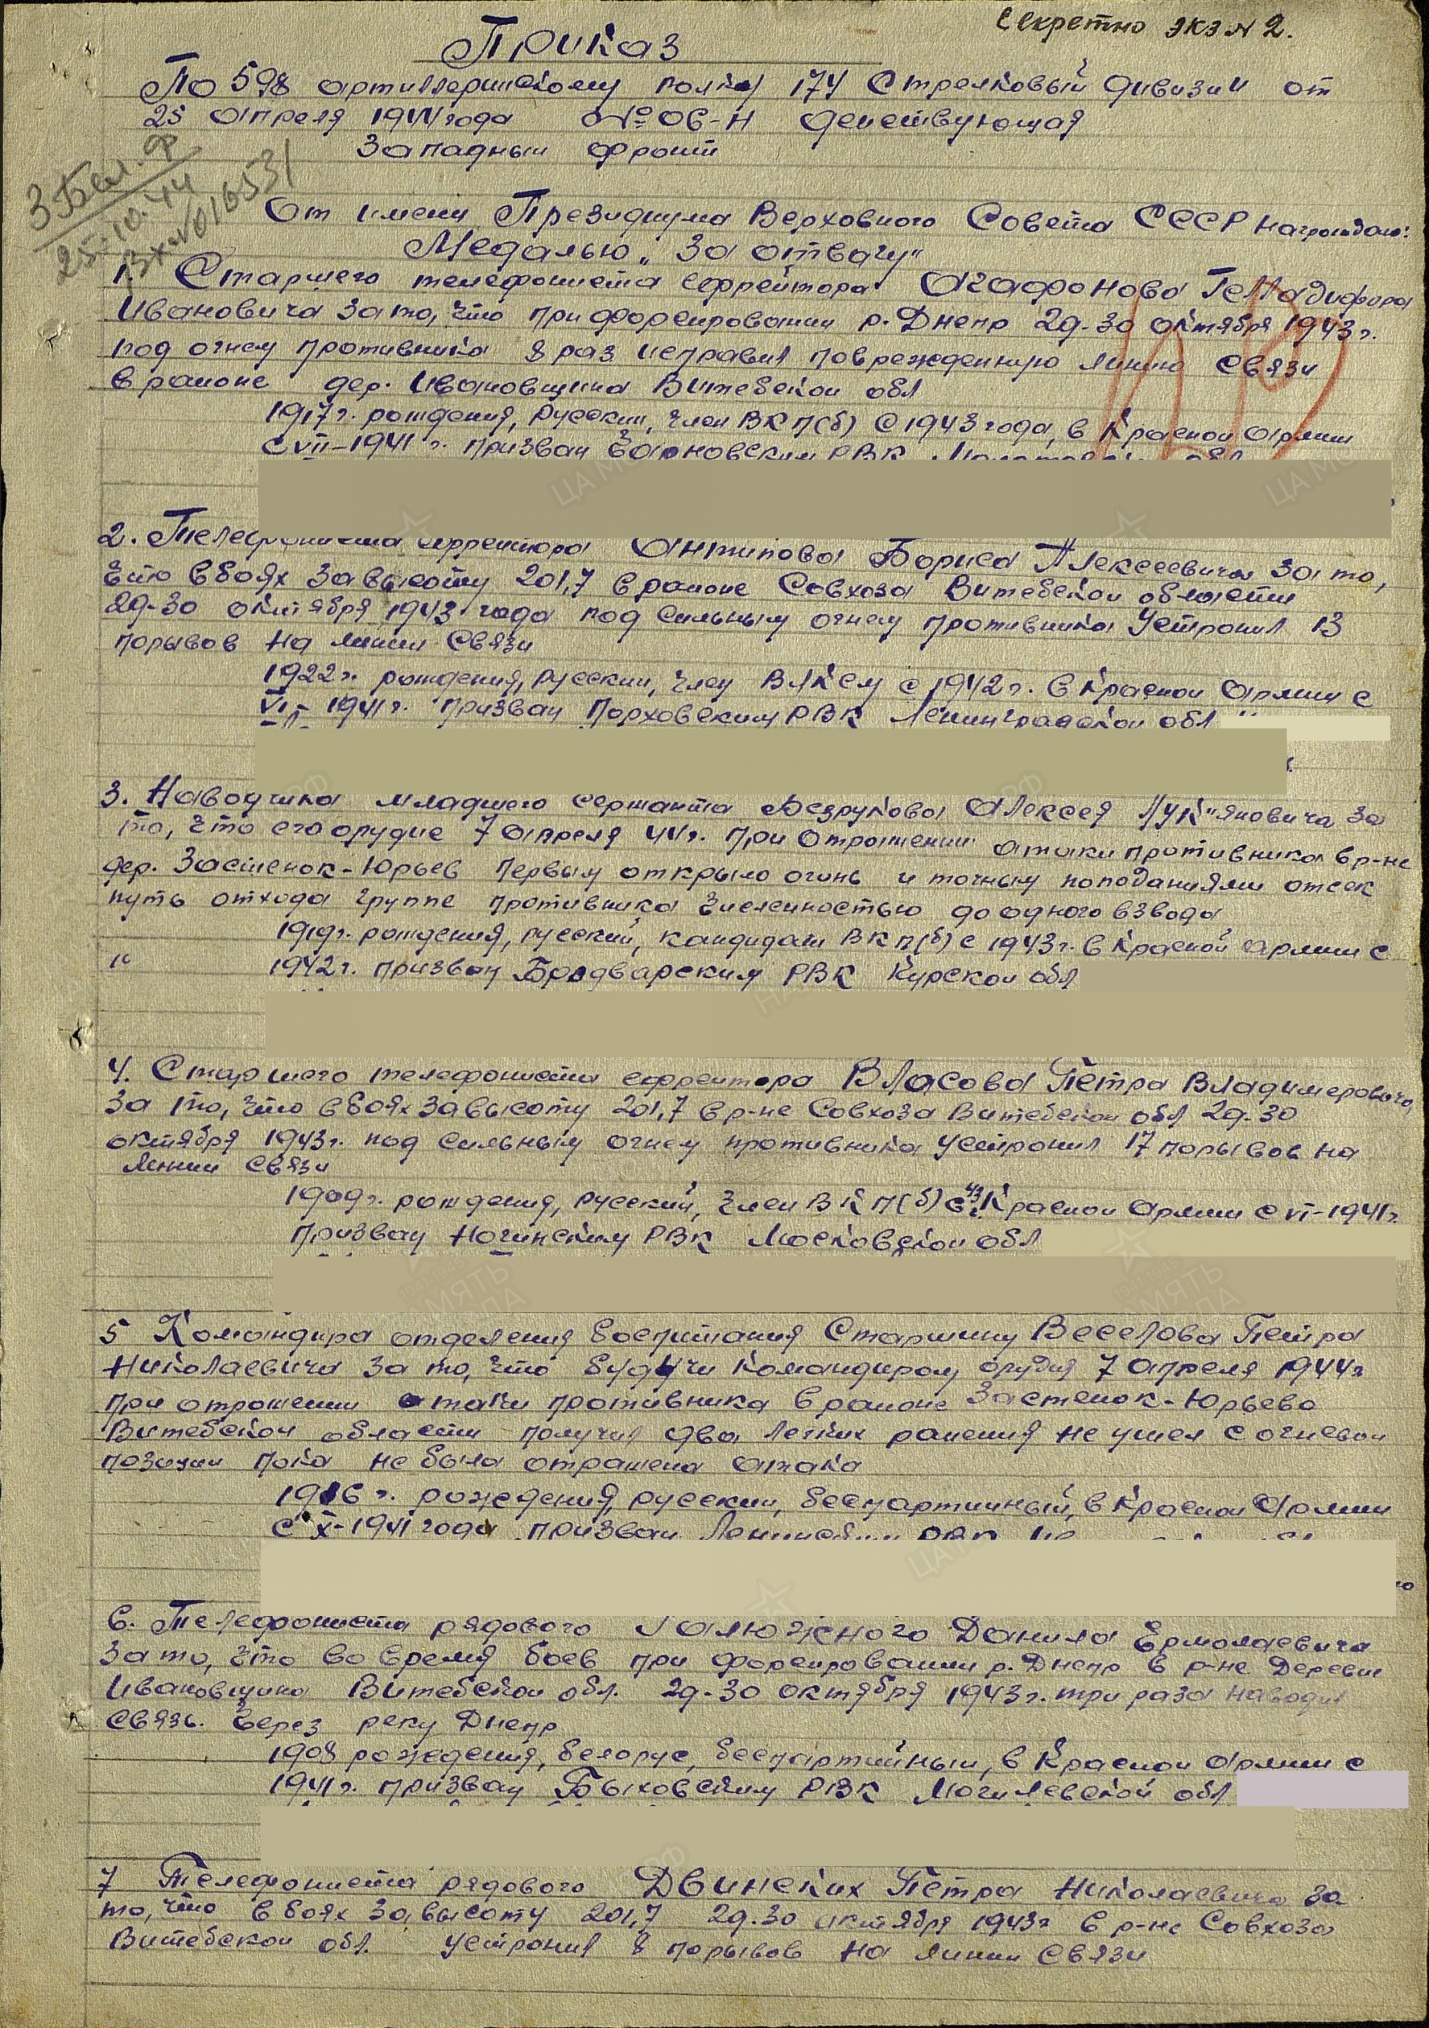 Секретно экз N 2.
Приказ
По 598 артиллерийскому полку 174 Стрелковый дивизии от
25 апреля 1944 года № 06-Н действующая
Западный фронт
3 Бел. Ф
25.10.44
Вх N 016531
От имени Президиума Верховного Совета СССР награждаю:
Медалью „За отвагу"
1. Старшего телефониста ефрейтора Агафонова
Ивановича за то, что при форсировании р. Днепр 29-30 октября 1943 г.
под огнем противника 8 раз исправил поврежденную линию связи
в районе дер. Ивановщина Витебской обл
1917 г. рождения, русский, член ВКП(б) с 1943 года, в Красной армии
с VII-1941 г. призван РВК
2. Телефониста ефрейтора Антипова Бориса Алексеевича за то,
что в боях за высоту 201,7 в районе Совхоза Витебской области
29-30 октября 1943 года под сильным огнем противника устронил 13
порывов на линии связи
1922 г. рождения, русский, член ВЛКСМ с 1942 г. в Красной армии с
VII-1941 г. призван Порховским РВК Ленинградской обл
3. Наводчика младшего сержанта Безрукова Алексея Лук"яновича за
то, что его орудие 7 апреля 44 г. при отражении атаки противника в р-не
дер. Застенок-Юрьев первым открыло огонь и точным попаданиями отсек
путь отхода группе противника численностью до одного взвода
1919 г. рождения, русский, кандидат ВКП(б) с 1943 г. в Красной армии с
1942 г. призван РВК Курской обл
4. Старшего телефониста ефрейтора Власова Петра Владимеровича
за то, что в боях за высоту 201,7 в р-не Совхоза Витебской обл 29-30
октября 1943 г. под сильным огнем противника устронил 17 порывов на
линии связи
1909 г. рождения, русский, член ВКП(б) с 43 г. Красной армии с VI-1941 г.
призван Ногинским РВК Московской обл
5 Командира отделения Старшину Веселова Петра
Николаевича за то, что будучи командиром орудия 7 апреля 1944 г
при отражении атаки противника в районе Застенок-Юрьево
Витебской области получил два легких ранения не ушел с огневой
позиции пока не была отражена атака
1916 г. рождения, русский, беспартийный, в Красной Армии
с X-1941 года призван Ленинским РВК
6. Телефониста рядового Калюжного Данила Ермолаевича
за то, что во время боев при форсировании р. Днепр в р-не Деревни
Ивановщино Витебской обл. 29-30 октября 1943 г. три раза наводил
связь через реку Днепр
1908 рождения, белорус, беспартийный, в Красной Армии с
1941 г. призван Быховским РВК Могилевской обл
7 Телефониста рядового Двинских Петра Николаевича за
то, что в боях за высоту 201,7 29-30 октября 1943 г в р-не Совхоза
Витебской обл. устронил 8 порывов на линии связи